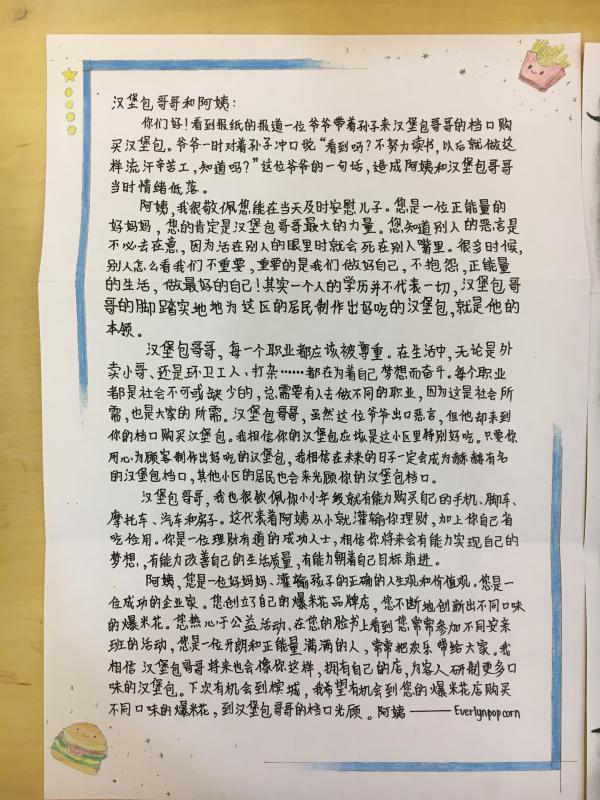 汉堡包哥哥和阿姨：
你们好！看到报纸的报道一位爷爷带着孙子来汉堡包哥哥的档口购
买汉堡包。爷爷一时对着孙子冲口说“看到吗？不努力读书，以后就做这
样流汗辛苦工，知道吗？”这位爷爷的一句话，造成阿姨和汉堡包哥哥
当时情绪低落。
阿姨，我很敬佩您能在当天及时安慰儿子。您是一位正能量的
好妈妈，您的肯定是汉堡包哥哥最大的力量。您知道别人的恶言是
不必去在意，因为活在别人的眼里时就会死在别人嘴里。很多时候，
别人怎么看我们不重要，重要的是我们做好自己，不抱怨，正能量
的生活，做最好的自己！其实一个人的学历并不代表一切，汉堡包哥
哥的脚踏实地地为这区的居民制作出好吃的汉堡包，就是他的
本领。
汉堡包哥哥，每一个职业都应该被尊重。在生活中，无论是外
卖小哥、还是环卫工人、打杂……都在为着自己梦想而奋斗。每个职业
都是社会不可或缺少的，总需要有人去做不同的职业，因为这是社会所
需，也是大家的所需。汉堡包哥哥，虽然这位爷爷出口恶言，但他却来到
你的档口购买汉堡包。我相信你的汉堡包应该是这小区里特别好吃。只要你
用心为顾客制作出好吃的汉堡包，我相信在未来的日子一定会成为赫赫有名
的汉堡包档口，其他小区的居民也会来光顾你的汉堡包档口。
汉堡包哥哥，我也很敬佩你小小年级就有能力购买自己的手机、脚车、
摩托车、汽车和房子。这代表着阿姨从小就灌输你理财，加上你自己省
吃俭用。你是一位理财有道的成功人士，相信你将来会有能力实现自己的
梦想，有能力改善自己的生活质量，有能力朝着自己目标前进。
阿姨，您是一位好妈妈、灌输孩子的正确的人生观和价值观。您是一
位成功的企业家。您创立了自己的爆米花品牌店，您不断地创新出不同口味
的爆米花。您热心于公益活动、在您的脸书上看到您常常参加不同安亲
班的活动，您是一位开朗和正能量满满的人，常常把欢乐带给大家。我
相信汉堡包哥哥将来也会像你这样，拥有自己的店，为客人研制更多口
味的汉堡包。下次有机会到槟城，我希望有机会到您的爆米花店购买
不同口味的爆米花，到汉堡包哥哥的档口光顾。阿姨——Everlynpopcorn